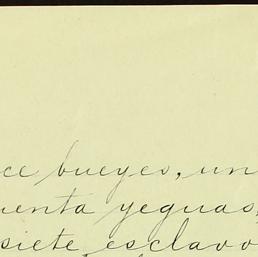 ce bueyes, un
uenta yeguas,
siete esclavo